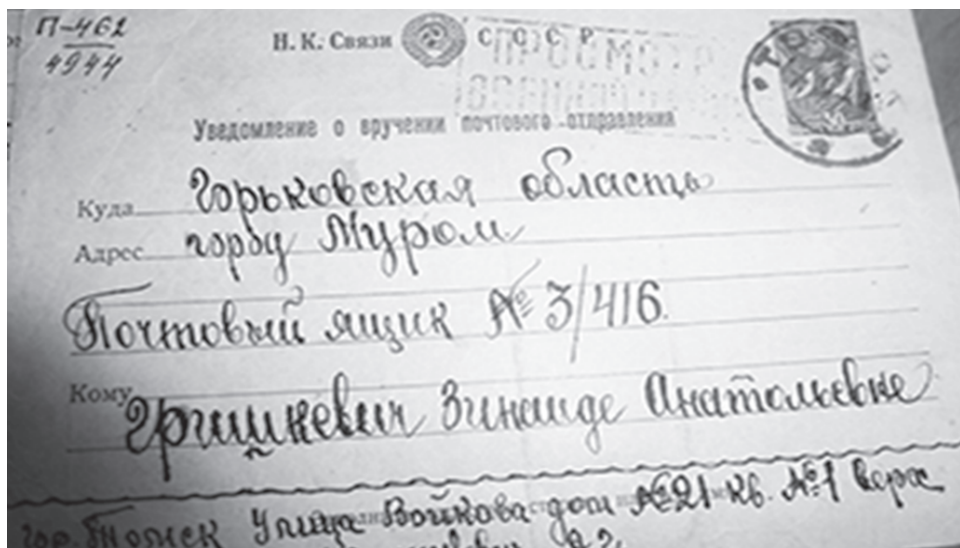 П-462
4944
Н. К. Связи С С С Р
ПРОСМОТР
Уведомление о вручении почтового отправления
Куда Горьковская область
Адрес город Муром
Почтовый ящик № 3/416.
Кому Гришкевич Зинаиде Анатольевне
гор. Томск Улица Войкова дом №21 кв. №1